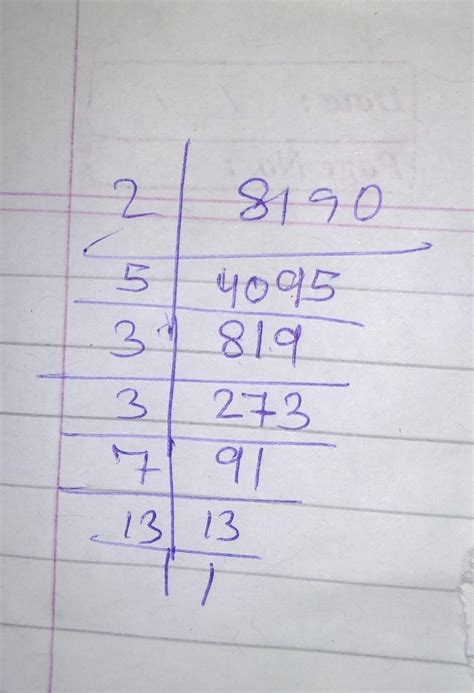 2 | 8190
5 | 4095
3 | 819
3 | 273
7 | 91
13 | 13
| 1